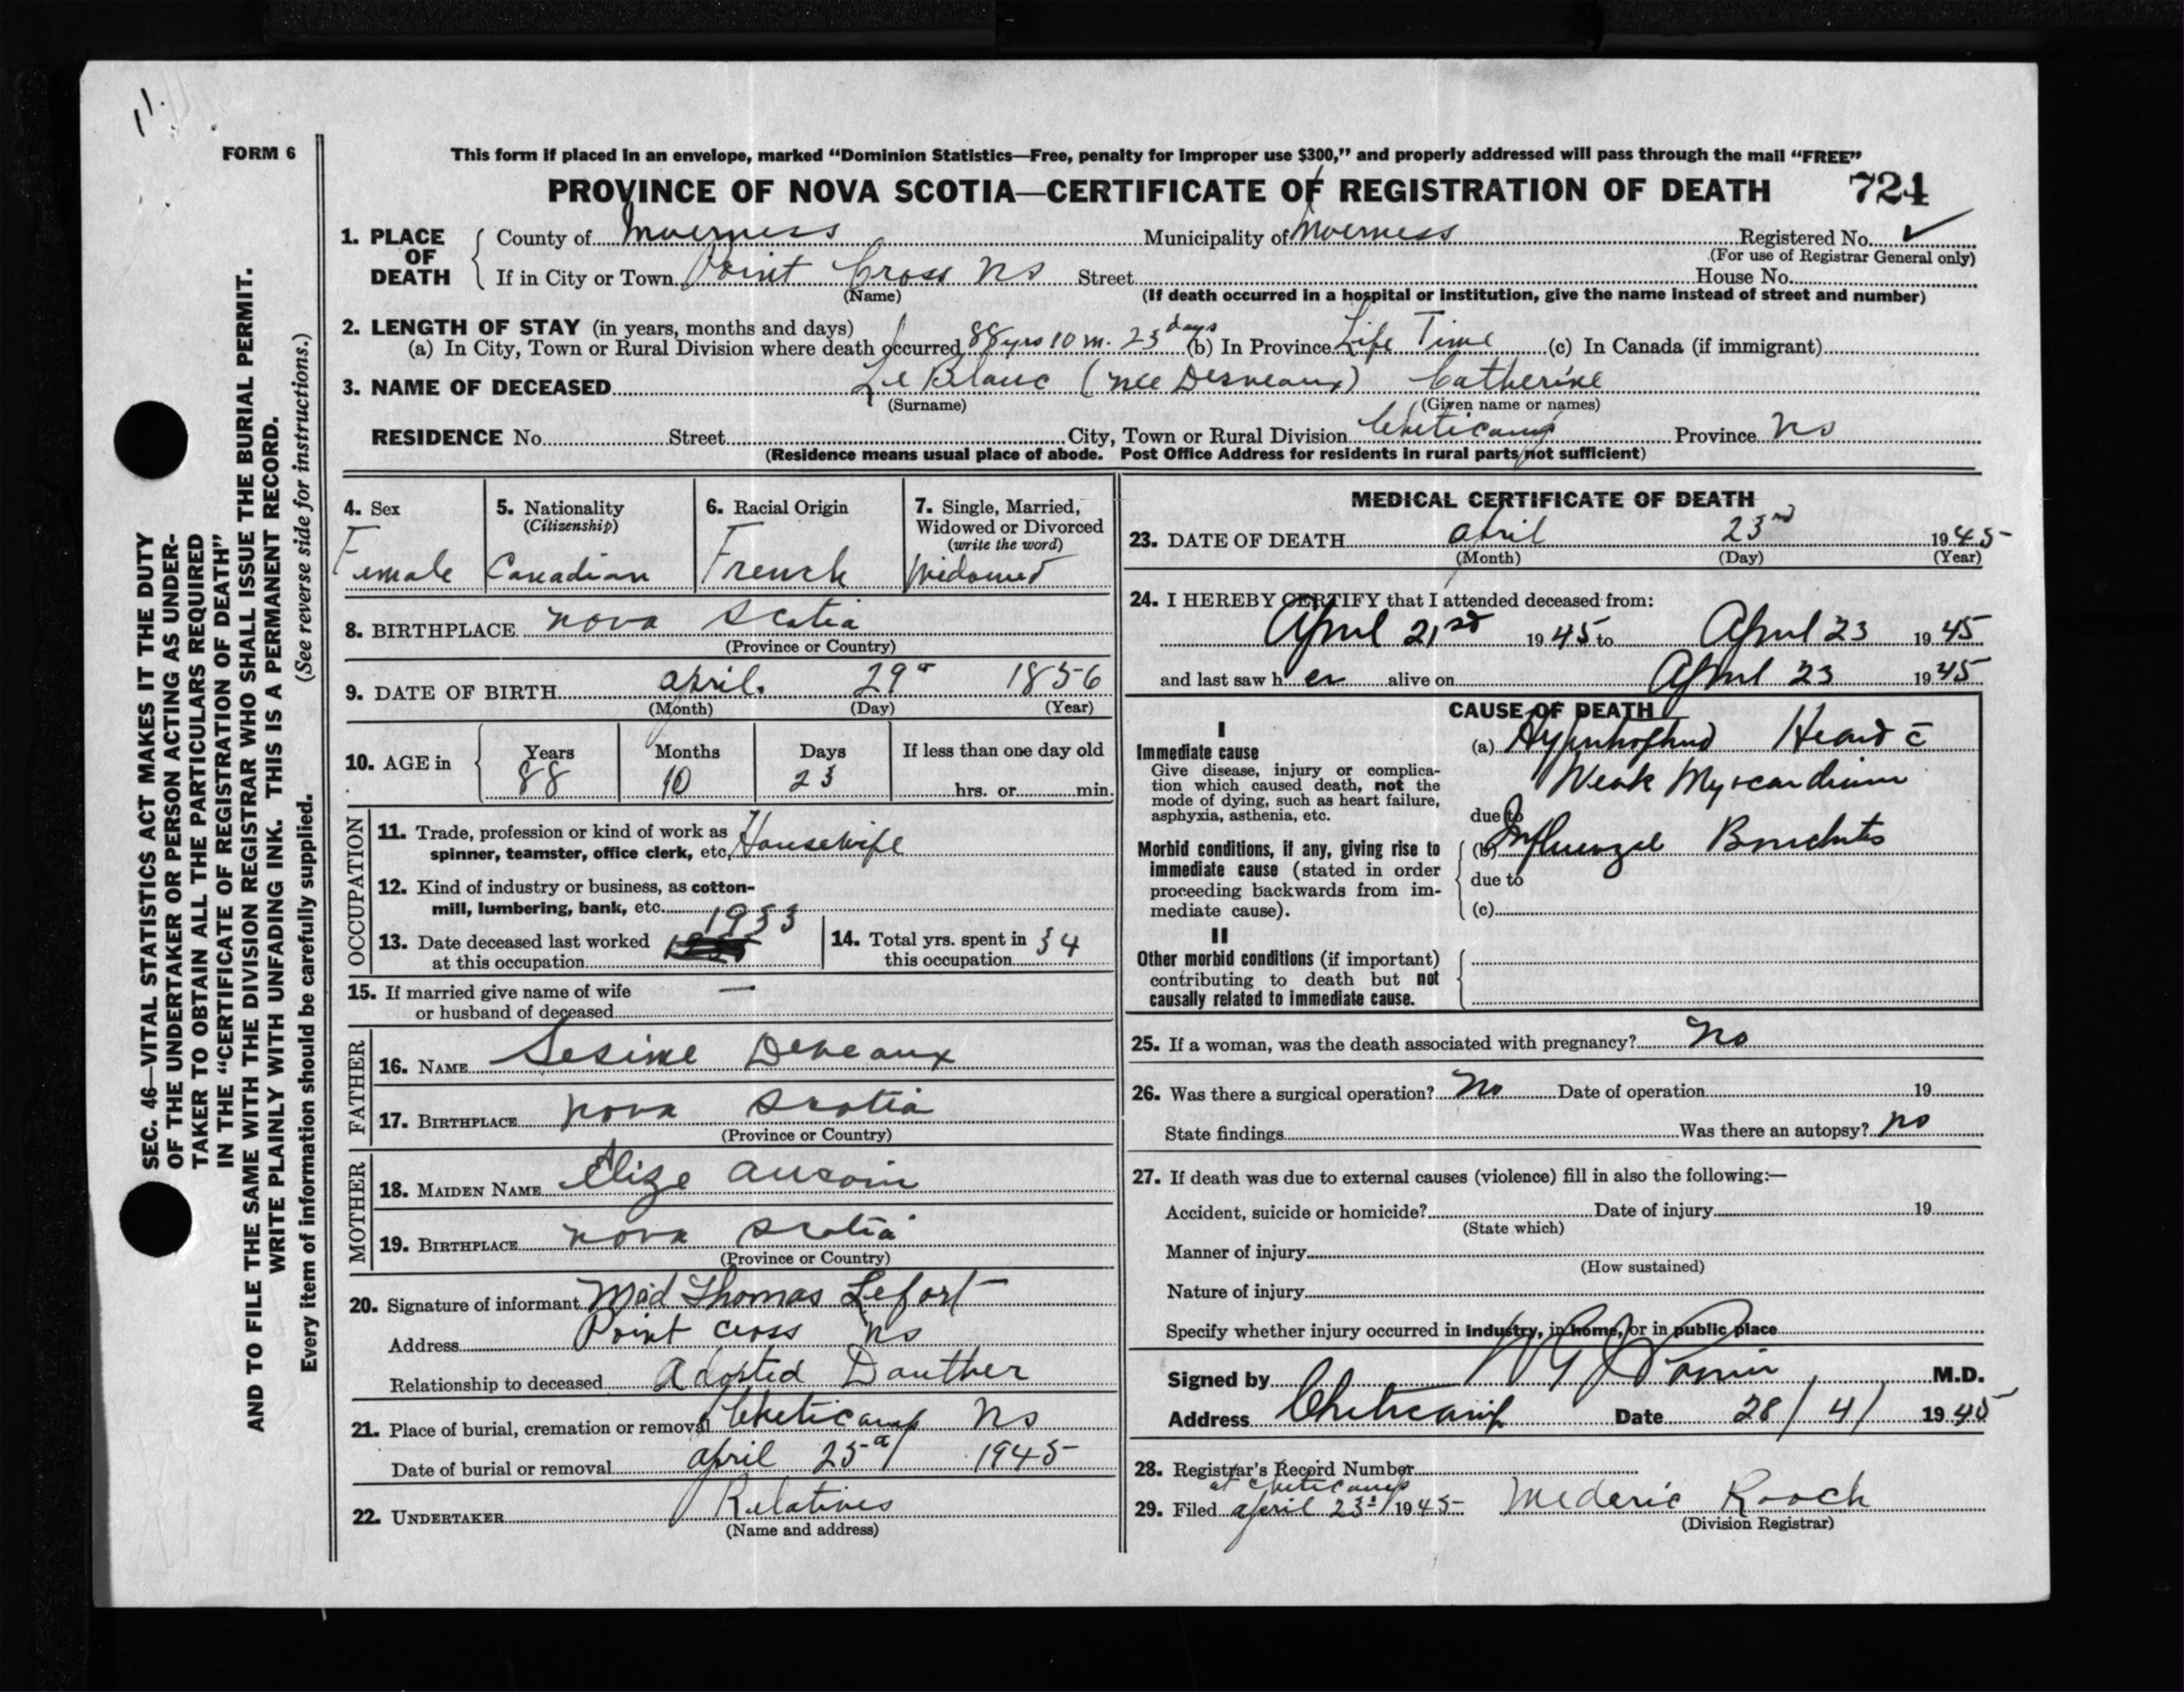 FORM 6
This form if placed in an envelope, marked “Dominion Statistics—Free, penalty for improper use $300,” and properly addressed will pass through the mail “FREE”
PROVINCE OF NOVA SCOTIA—CERTIFICATE OF REGISTRATION OF DEATH 724
1. PLACE OF DEATH
County of Inverness Municipality of Inverness Registered No. ✓
(For use of Registrar General only)
If in City or Town Point Cross NS Street House No.
(Name) (If death occurred in a hospital or institution, give the name instead of street and number)
2. LENGTH OF STAY (in years, months and days)
(a) In City, Town or Rural Division where death occurred 88 yrs 10 m. 23 days (b) In Province Life Time (c) In Canada (if immigrant)
3. NAME OF DECEASED Le Blanc (nee Desveaux) Catherine
(Surname) (Given name or names)
RESIDENCE No. Street City, Town or Rural Division Cheticamp Province NS
(Residence means usual place of abode. Post Office Address for residents in rural parts not sufficient)
4. Sex
Female
5. Nationality
(Citizenship)
Canadian
6. Racial Origin
French
7. Single, Married,
Widowed or Divorced
(write the word)
Widowed
8. BIRTHPLACE Nova Scotia
(Province or Country)
9. DATE OF BIRTH April. 29 1856
(Month) (Day) (Year)
10. AGE in
Years Months Days If less than one day old
88 10 23 hrs. or min.
OCCUPATION
11. Trade, profession or kind of work as
spinner, teamster, office clerk, etc. Housewife
12. Kind of industry or business, as cotton-
mill, lumbering, bank, etc.
13. Date deceased last worked
at this occupation 1933
14. Total yrs. spent in
this occupation 34
15. If married give name of wife
or husband of deceased —
FATHER
16. NAME Sesime Deveaux
17. BIRTHPLACE Nova Scotia
(Province or Country)
MOTHER
18. MAIDEN NAME Elize Aucoin
19. BIRTHPLACE Nova Scotia
(Province or Country)
20. Signature of informant Mad Thomas Lefort
Address Point Cross NS
Relationship to deceased Adopted Dauther
21. Place of burial, cremation or removal Cheticamp NS
Date of burial or removal April 25 1945
22. UNDERTAKER Relatives
(Name and address)
MEDICAL CERTIFICATE OF DEATH
23. DATE OF DEATH April 23rd 1945
(Month) (Day) (Year)
24. I HEREBY CERTIFY that I attended deceased from:
April 21st 1945 to April 23 1945
and last saw her alive on April 23 1945
CAUSE OF DEATH
I
Immediate cause
Give disease, injury or complica-
tion which caused death, not the
mode of dying, such as heart failure,
asphyxia, asthenia, etc.
(a) Hypertrophied Heart c̄
Weak Myocardium
due to
Morbid conditions, if any, giving rise to
immediate cause (stated in order
proceeding backwards from im-
mediate cause).
(b) Influenzal Bronchitis
due to
(c)
II
Other morbid conditions (if important)
contributing to death but not
causally related to immediate cause.
25. If a woman, was the death associated with pregnancy? No
26. Was there a surgical operation? No Date of operation 19
State findings Was there an autopsy? no
27. If death was due to external causes (violence) fill in also the following:—
Accident, suicide or homicide? Date of injury 19
(State which)
Manner of injury
(How sustained)
Nature of injury
Specify whether injury occurred in industry, in home, or in public place
Signed by M.D.
Address Cheticamp Date 28/4/ 1945
28. Registrar's Record Number
at Cheticamp
29. Filed April 23 1945 Mederic Rooch
(Division Registrar)
SEC. 46—VITAL STATISTICS ACT MAKES IT THE DUTY
OF THE UNDERTAKER OR PERSON ACTING AS UNDER-
TAKER TO OBTAIN ALL THE PARTICULARS REQUIRED
IN THE “CERTIFICATE OF REGISTRATION OF DEATH”
AND TO FILE THE SAME WITH THE DIVISION REGISTRAR WHO SHALL ISSUE THE BURIAL PERMIT.
WRITE PLAINLY WITH UNFADING INK. THIS IS A PERMANENT RECORD.
Every item of information should be carefully supplied. (See reverse side for instructions.)